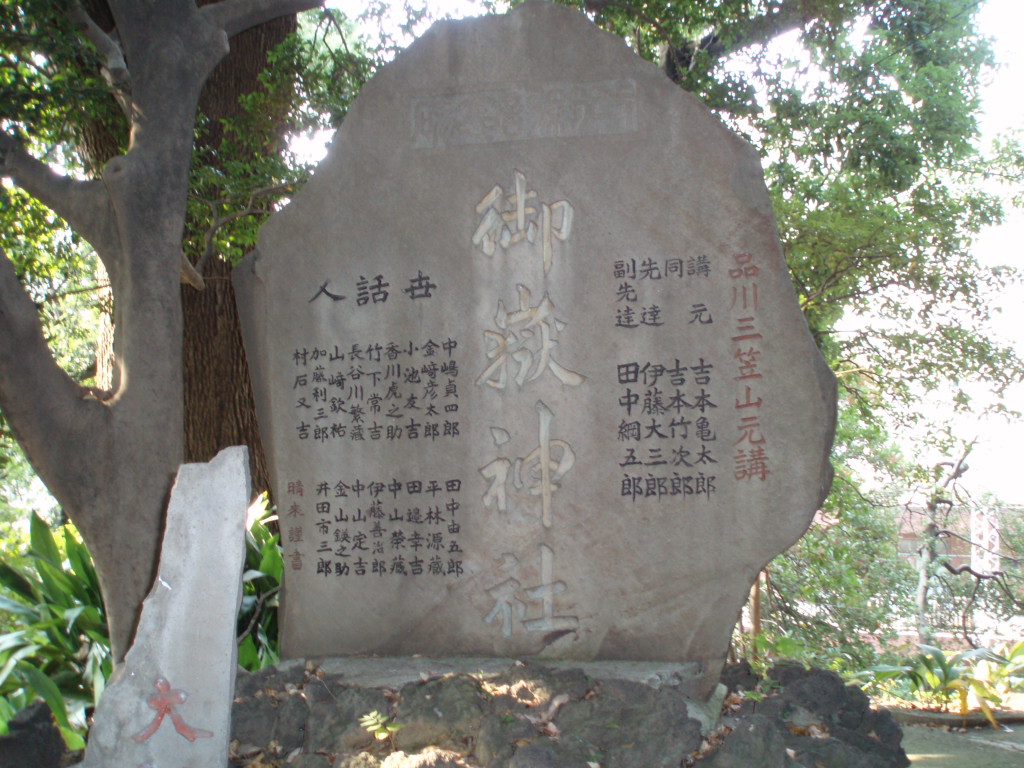 品川三笠山元講
講元 吉本亀太郎
同 吉本竹次郎
先達 伊藤大三郎
副先達 田中綱五郎
御嶽神社
世話人
中嶋貞四郎
金﨑彦太郎
小池友吉
香川虎之助
竹下常吉
長谷川繁蔵
山﨑欽祐
加藤利三郎
村石又吉
田中由五郎
平林源蔵
田邊幸吉
中山榮蔵
伊藤善治郎
中山定吉
金山鎂之助
井田市三郎
晴来謹書
大